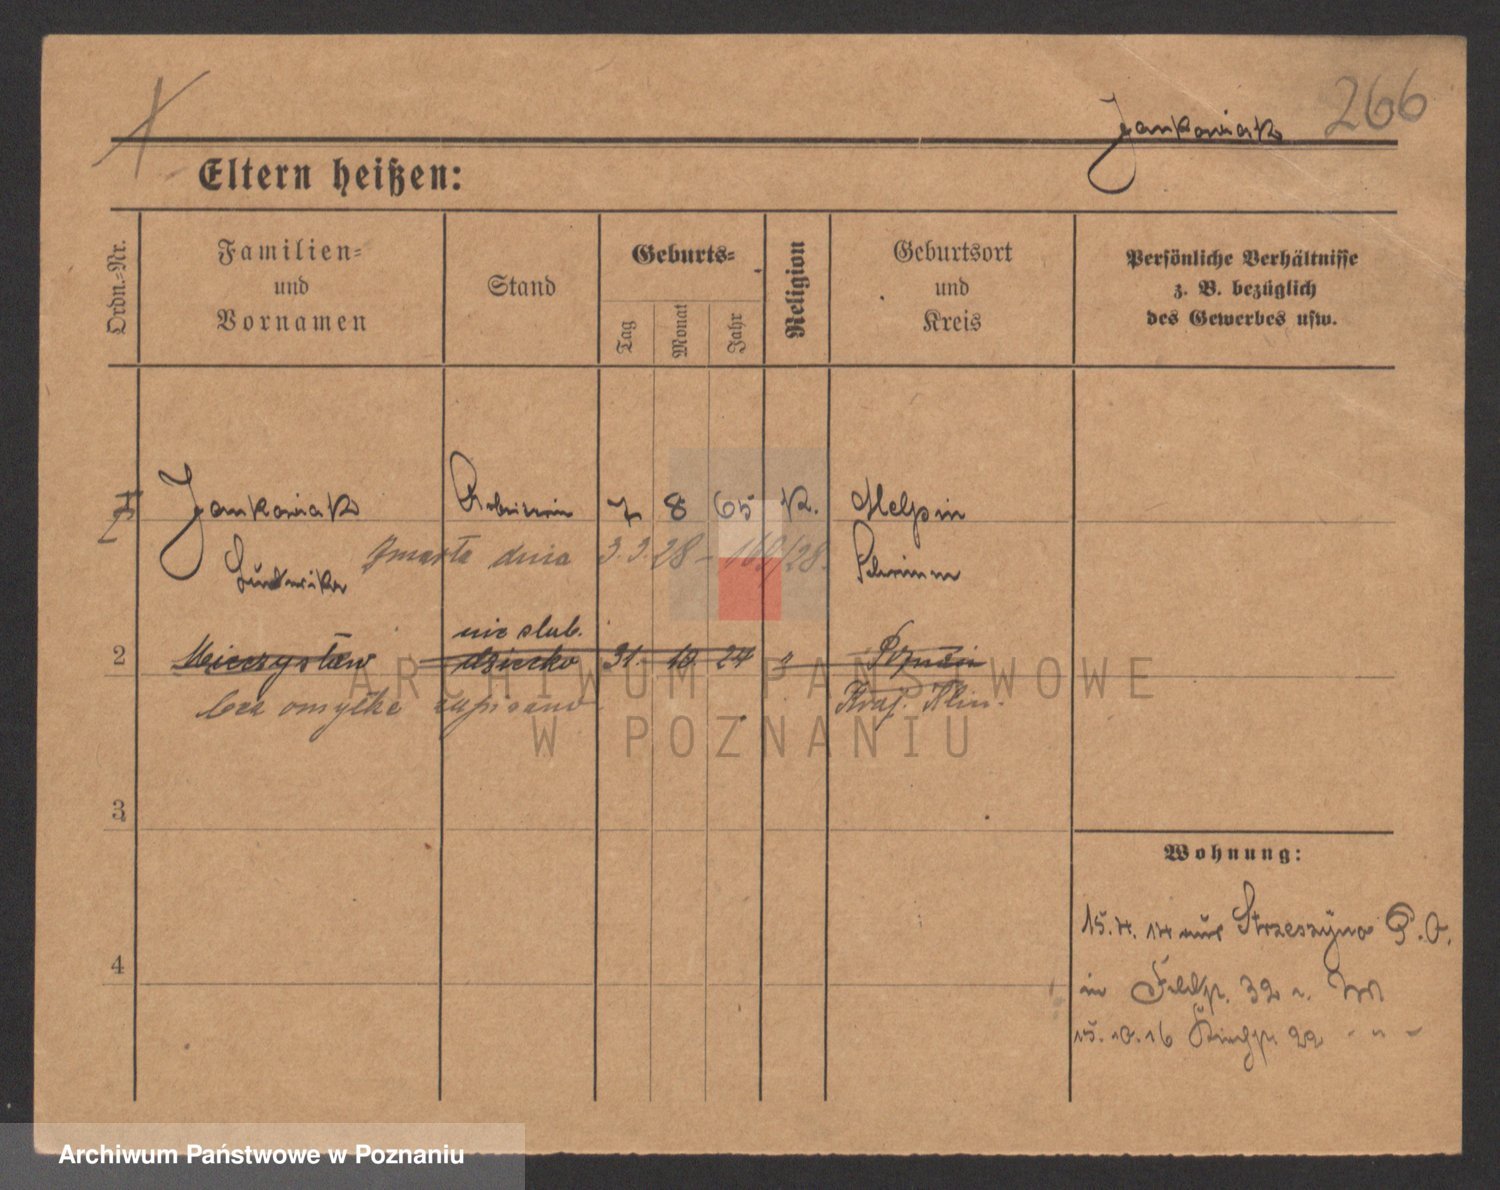 266
Jankowiak
Eltern heißen:
Ordn.-Nr.
Familien-
und
Vornamen
Stand
Geburts-
Tag
Monat
Jahr
Religion
Geburtsort
und
Kreis
Persönliche Verhältnisse
z. B. bezüglich
des Gewerbes usw.
Jankowiak 7 8 65 K. Melpin
Ludwika Schrimm
Zmarła dnia 3.3.28 - 169/28.
nie slub.
2 Mieczysław dziecko 31. 10. 24 " Poznań
omyłkę zapisano
ARCHIWUM PAŃSTWOWE
W POZNANIU
3
Wohnung:
15.4.14 aus Strzeszyno P.O.
4
in Feldstr. 32
15.10.16 22 - " -
Archiwum Państwowe w Poznaniu